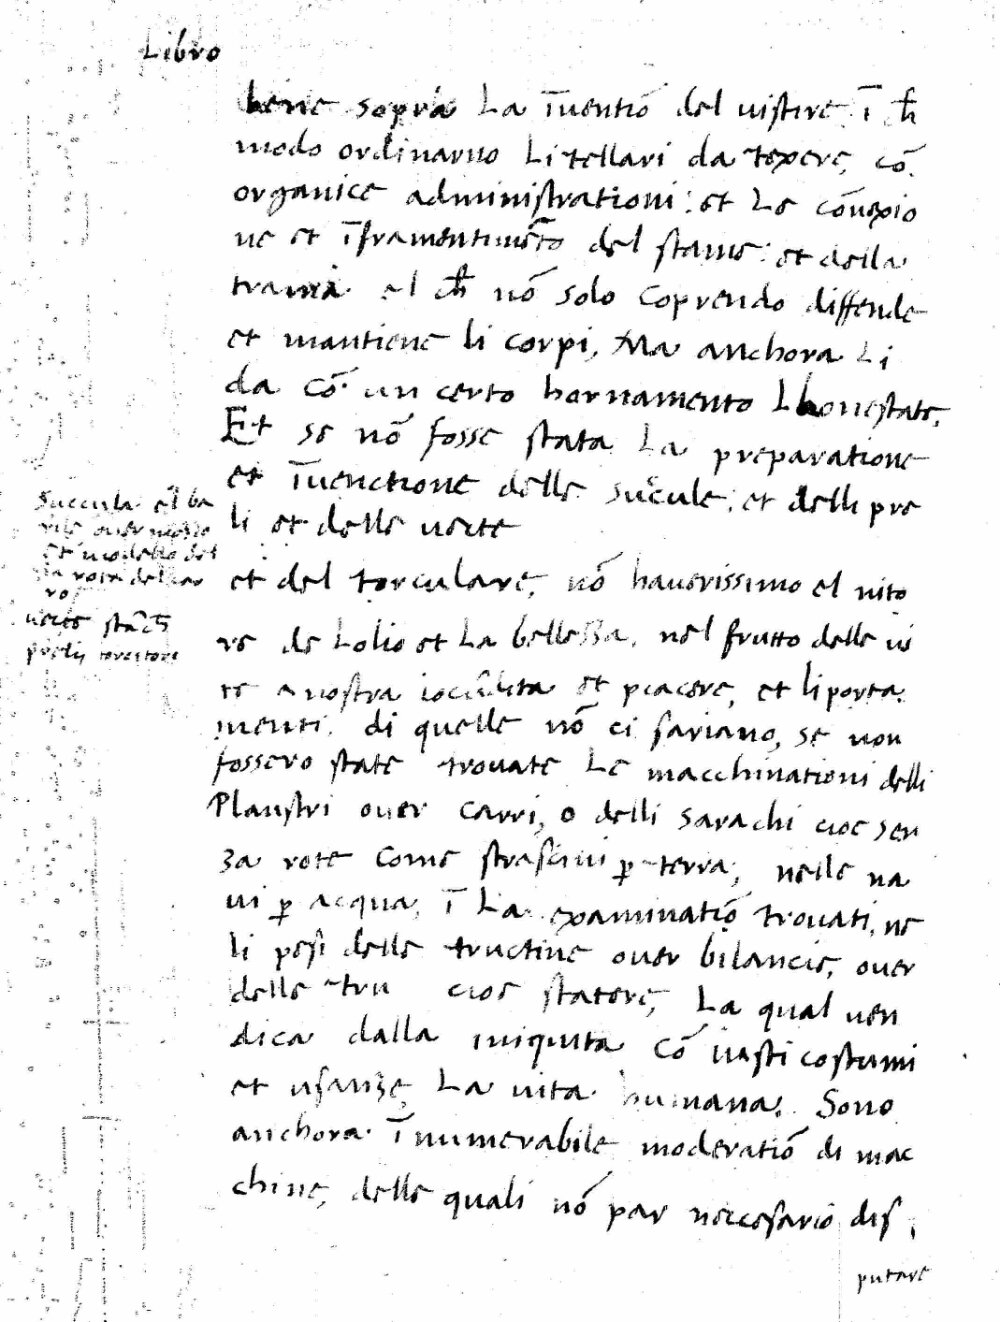 Libro
bene sopra La īuentiō del uistire ī ch̄
modo ordinarno Li tellari da texere, cō
organice administrationi: et Le cōnexio
ne et īframentimēto del stame: et della
trama el ch̄ nō solo coprendo diffende
et mantiene li corpi, Ma anchora Li
da cō un certo hornamento Lhonestate,
Et se nō fosse stata La preparatione
et īuenctione delle succule, et delli pre
li et delle uecte
et del torculare, nō hauerissimo el nito
re de Lolio et La bellezza, nel frutto delle ui
te a nostra iocūdita et piacere, et li porta
menti di quelle nō ci sariano, se non
fossero state trouate Le macchinationi delli
Plaustri ouer carri, o delli sarachi cioe sen
za rote come strascini p̱ terra, nelle na
ui p̱ acqua, ī La examinatiō trouati, ne
li pesi delle tructine ouer bilancie, ouer
delle tru cioe statere, La qual uen
dica dalla iniquita cō iusti costumi
et usanze, La uita humana. Sono
anchora īnumerabile moderatiō di mac
chine, delle quali nō par neccesario dis
putare
Succula el ba
rile ouer
et modello del
la rota del
ro
uecte